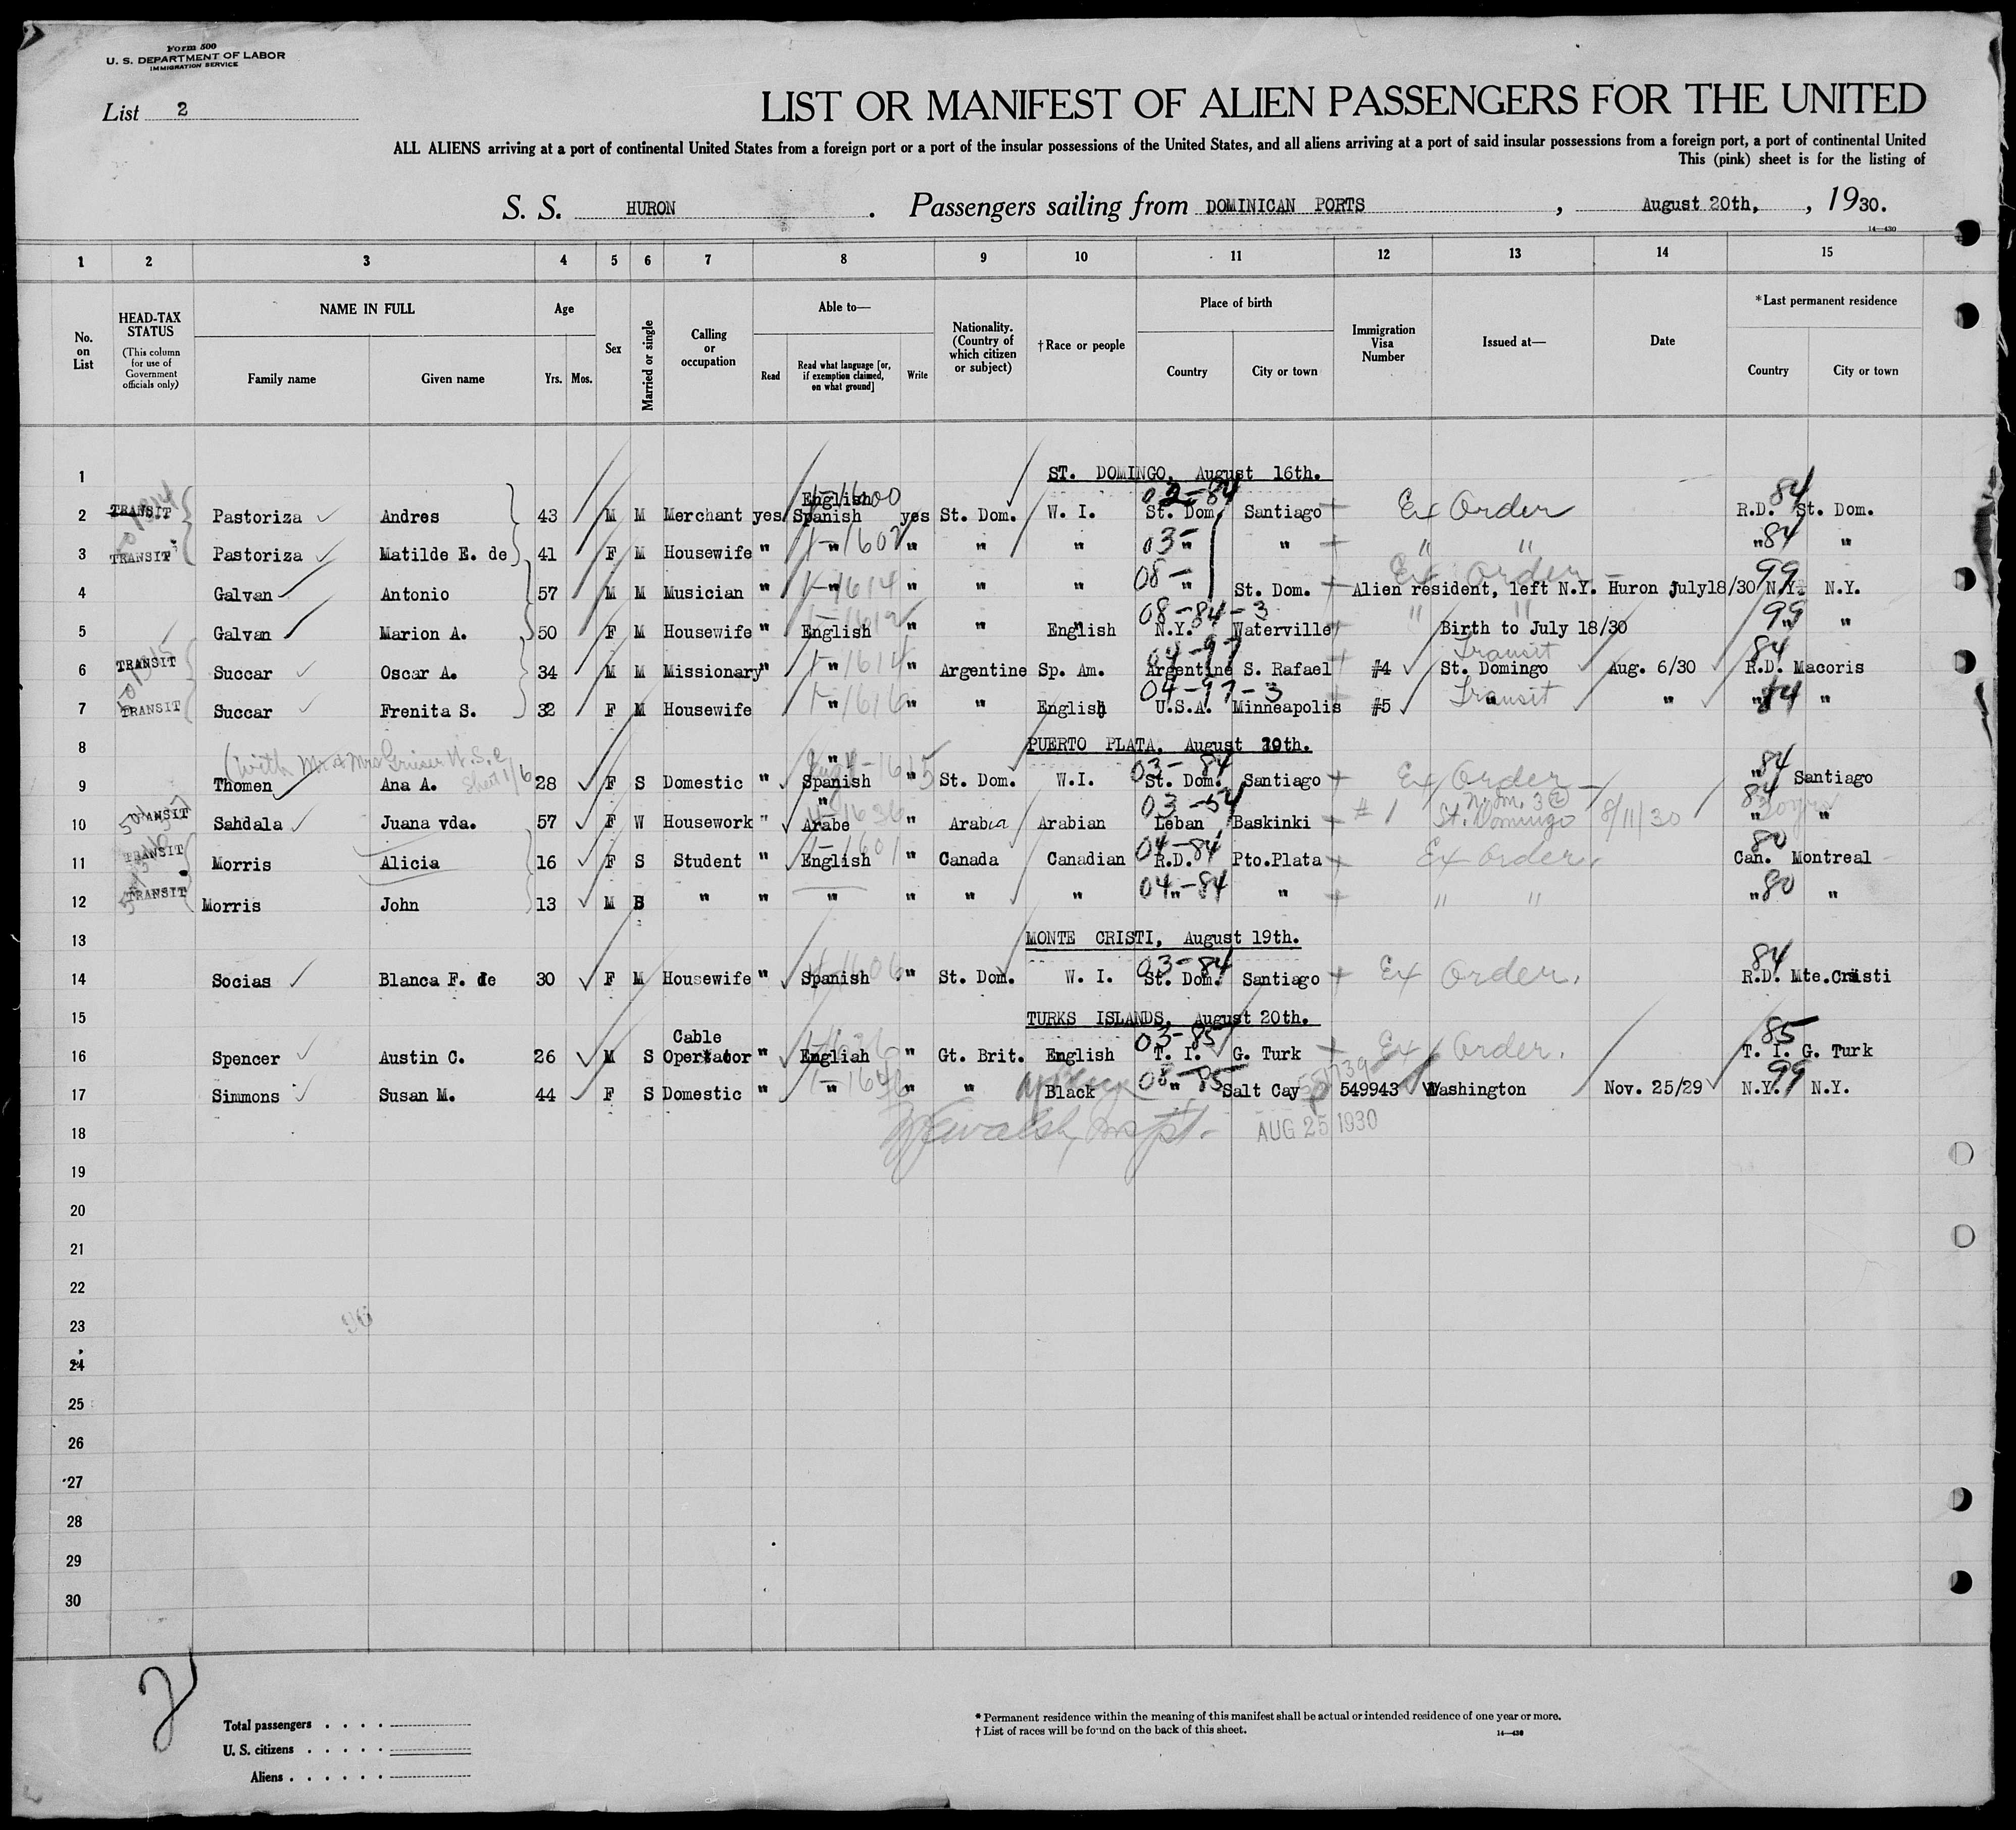 Form 500
U. S. DEPARTMENT OF LABOR
IMMIGRATION SERVICE
List 2
LIST OR MANIFEST OF ALIEN PASSENGERS FOR THE UNITED
ALL ALIENS arriving at a port of continental United States from a foreign port or a port of the insular possessions of the United States, and all aliens arriving at a port of said insular possessions from a foreign port, a port of continental United
This (pink) sheet is for the listing of
S. S. HURON . Passengers sailing from DOMINICAN PORTS , August 20th, , 1930.
14—430
1 2 3 4 5 6 7 8 9 10 11 12 13 14 15
No. on List
HEAD-TAX STATUS
(This column for use of Government officials only)
NAME IN FULL
Family name Given name
Age
Yrs. Mos.
Sex
Married or single
Calling or occupation
Able to—
Read
Read what language [or, if exemption claimed, on what ground]
Write
Nationality. (Country of which citizen or subject)
†Race or people
Place of birth
Country City or town
Immigration Visa Number
Issued at—
Date
*Last permanent residence
Country City or town
1 ST. DOMINGO, August 16th.
English 1-1600 02-84 84
2 TRANSIT Pastoriza Andres 43 M M Merchant yes Spanish yes St. Dom. W. I. St. Dom. Santiago Ex Order R.D. St. Dom.
3 TRANSIT Pastoriza Matilde E. de 41 F M Housewife " " 1-1607 " " " 03- " " " " " 84 "
4 Galvan Antonio 57 M M Musician " " 1-1614 " " " 08- " St. Dom. Ex Order Alien resident, left N.Y. Huron July18/30 99 N.Y. N.Y.
5 Galvan Marion A. 50 F M Housewife " English " " English 08-84-3 N.Y. Waterville " " Birth to July 18/30 99 " "
6 TRANSIT Succar Oscar A. 34 M M Missionary " " 1-1614 " Argentine Sp. Am. 04-97 Argentine S. Rafael #4 Transit St. Domingo Aug. 6/30 84 R.D. Macoris
7 TRANSIT Succar Frenita S. 32 F M Housewife " 1-1616 " " English 04-97-3 U.S.A. Minneapolis #5 Transit " " " 84 "
8 PUERTO PLATA, August 20th.
(with Mr & Mrs U.S.C. Sheet 1/6
9 Thomen Ana A. 28 F S Domestic " Spanish " St. Dom. W.I. 03-84 St. Dom. Santiago Ex Order 84 " Santiago
10 TRANSIT Sahdala Juana vda. 57 F W Housework " Arabe " Arabia Arabian 03-54 Leban Baskinki # 1 St. Domingo 8/11/30 84 " "
11 TRANSIT Morris Alicia 16 F S Student " English 1-1601 " Canada Canadian 04-84 R.D. Pto.Plata Ex Order. 80 Can. Montreal
12 TRANSIT Morris John 13 M S " " " " " " 04-84 " " " " " 80 "
13 MONTE CRISTI, August 19th.
14 Socias Blanca F. de 30 F M Housewife " Spanish " St. Dom. W. I. 03-84 St. Dom. Santiago Ex Order. 84 R.D. Mte.Cristi
15 TURKS ISLANDS, August 20th.
Cable
16 Spencer Austin C. 26 M S Operator " English " Gt. Brit. English 03-85 T. I. G. Turk Ex Order. 85 T. I. G. Turk
17 Simmons Susan M. 44 F S Domestic " " " " Black 08-85 " Salt Cay 549943 Washington Nov. 25/29 99 N.Y. N.Y.
18 Walsh, Inspt. AUG 25 1930
19
20
21
22
23
24
25
26
27
28
29
30
96
2
Total passengers . . . .
U. S. citizens . . . . .
Aliens . . . . . .
* Permanent residence within the meaning of this manifest shall be actual or intended residence of one year or more.
† List of races will be found on the back of this sheet. 14—430